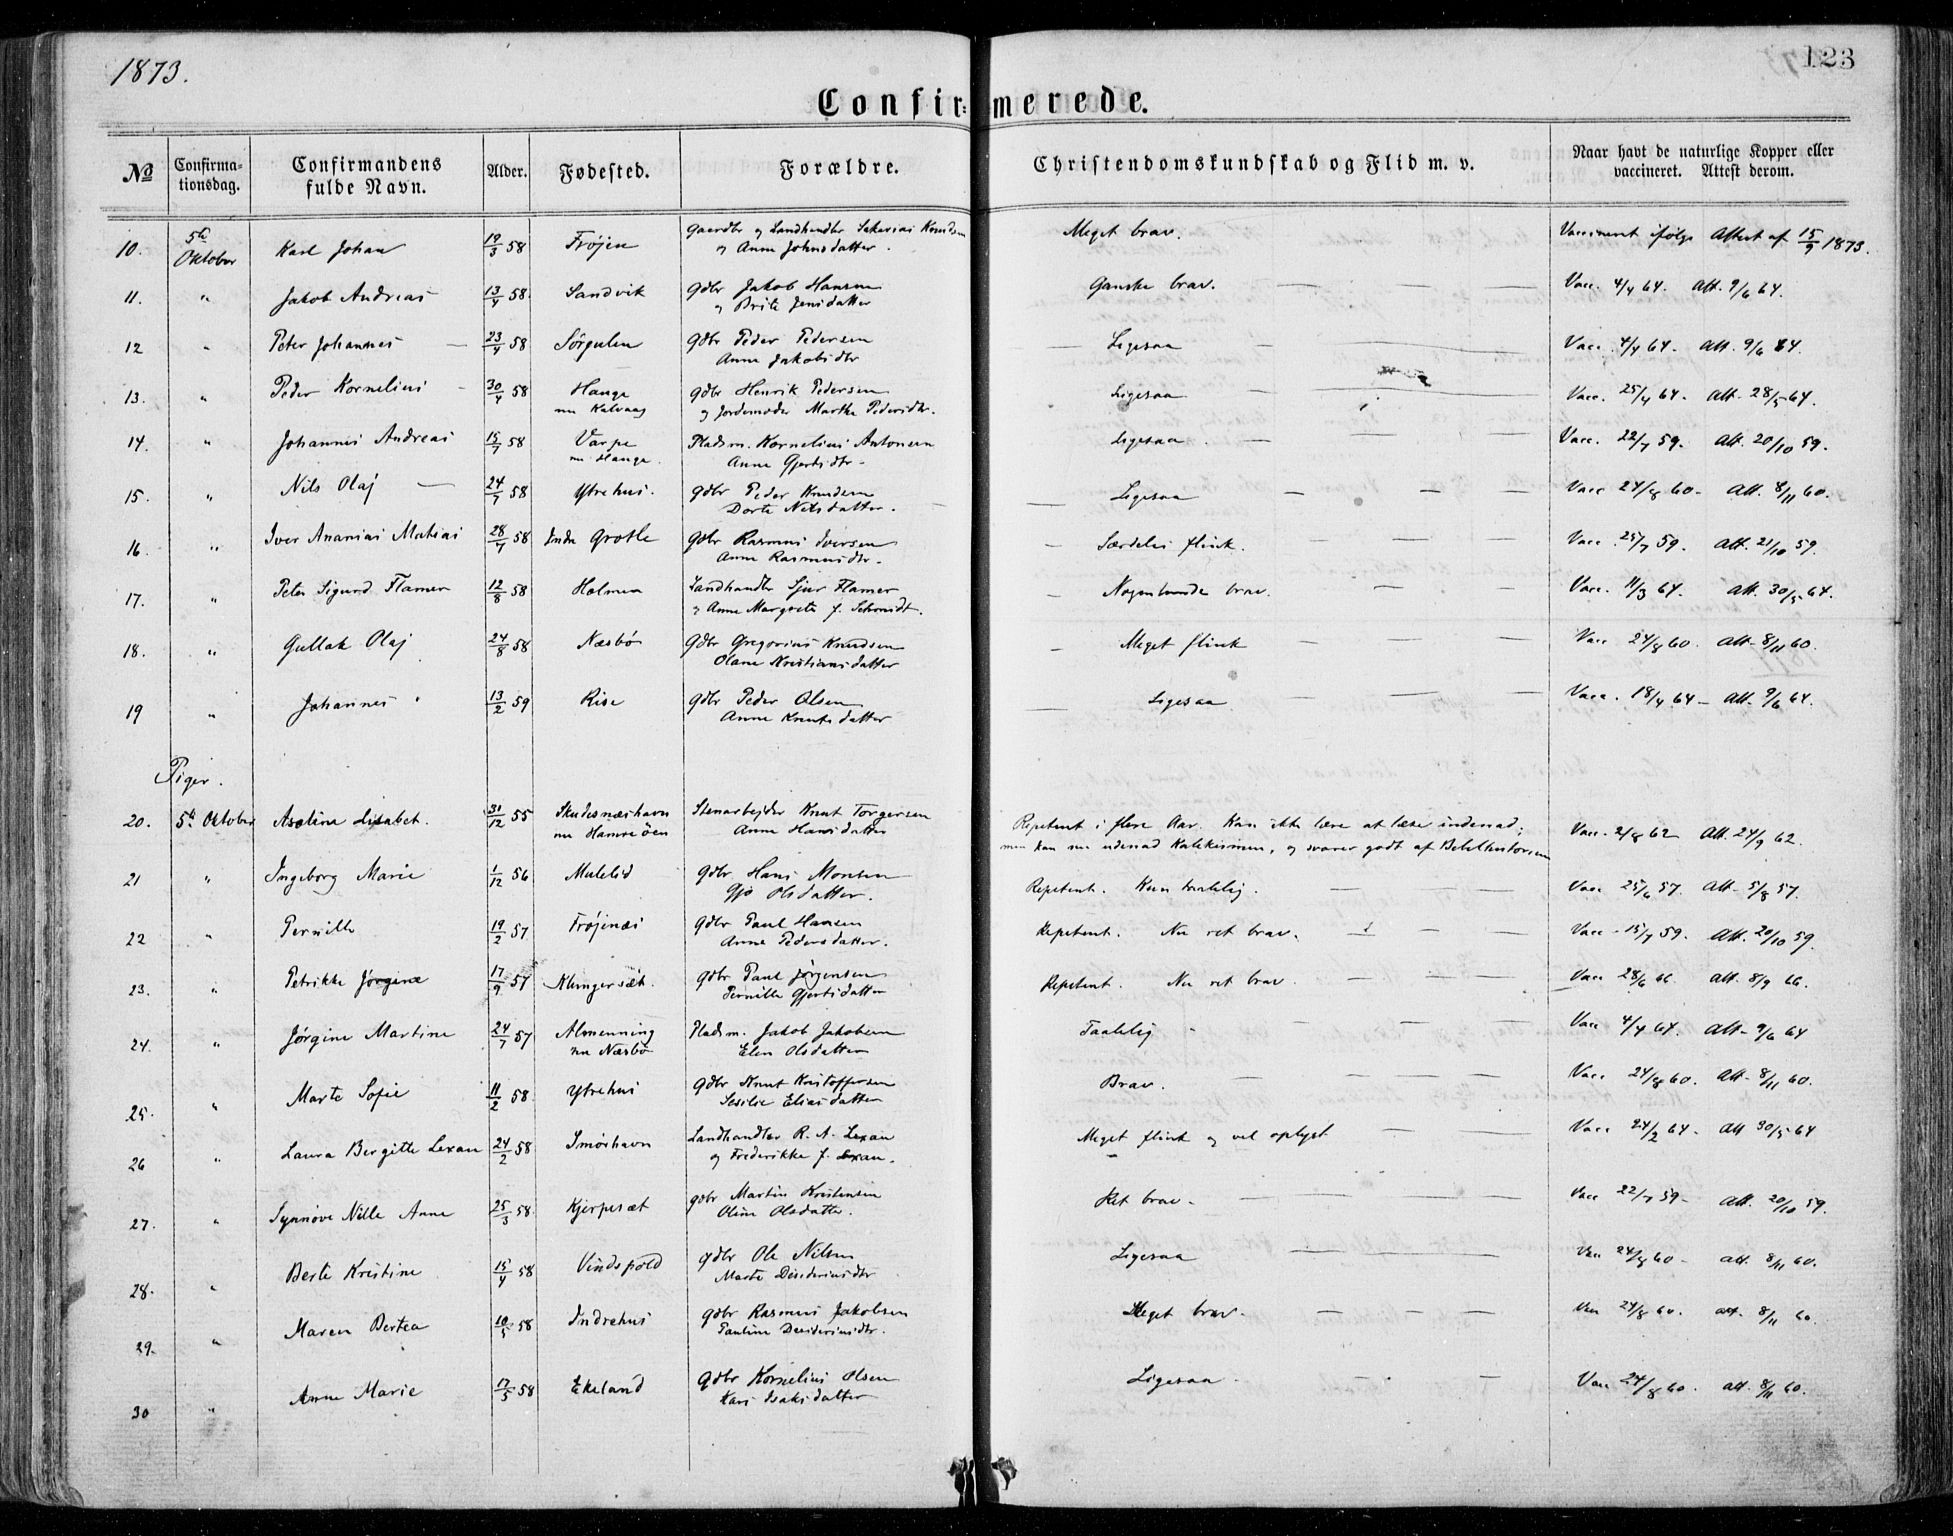 1873.
123
Confir- merede.
No Confirmationsdag. Confirmandens fulde Navn. Alder. Fødested. Forældre. Christendomskundskab og Flid m. v. Naar havt de naturlige Kopper eller vaccineret. Attest derom.
10. 5te Oktober Karl Johan 19/3 58 Frøjen Gaardbr og Landhandler Sakarias Knudsen
og Anne Johnsdatter. Meget brav. Vaccineret ifølge Attest af 15/9 1873.
11. " Jakob Andreas 13/4 58 Sandvik Gdbr Jakob Hansen
og Brite Jensdatter Ganske brav. Vacc. 4/4 64. Att. 9/6 64.
12 " Peter Johannes 23/4 58 Sørgulen Gdbr Peder Pedersen
Anne Jakobsdtr Ligesaa Vacc. 4/4 64. Att. 9/6 64.
13. " Peder Kornelius 30/4 58 Hauge
nu Kalvaag Gdbr Henrik Pedersen
og Jordemoder Marthe Pedersdtr. Ligesaa Vacc. 25/4 64. Att. 28/5 64.
14. " Johannes Andreas 15/7 58 Varpe
nu Hauge. Pladsm. Kornelius Antonsen
Anne Gjertsdtr. Ligesaa Vacc. 22/7 59. Att. 20/10 59.
15. " Nils Olaj 24/7 58 Ytrehus. Gdbr Peder Knudsen
Dorte Nilsdatter. Ligesaa Vacc 24/8 60. Att. 8/11 60.
16. " Iver Ananias Matias 28/7 58 Indre Grotle Gdbr Rasmus Iversen
Anne Rasmusdtr. Særdeles flink. Vacc. 25/7 59. Att. 21/10 59.
17. " Peter Sigurd Flamer 12/8 58 Holmen Landhandler Sjur Flamer
og Anne Margrete f. Schmidt. Nogenlunde brav. Vacc. 11/3 64. Att. 30/5 64.
18. " Gullak Olaj 24/8 58 Næsbø Gdbr Gregorius Knudsen
Olane Kristiansdatter Meget flink Vacc 24/8 60. Att. 8/11 60.
19 " Johannes 13/2 59 Rise Gdbr Peder Olsen
Anne Knutsdatter Ligesaa Vacc. 18/4 64 Att. 9/6 64.
Piger.
20. 5te Oktober Aseline Lisabet. 31/12 55 Skudesnæshavn
nu Hamreøen Stenarbejder Knut Torgersen
Anne Hansdatter Repetent i flere Aar. Kan ikke lære at læse indenad;
men kan nu udenad Katekismen, og svarer godt af Bibelhistorien Vacc. 2/8 62 Att. 24/9 62.
21 " Ingeborg Marie 1/12 56 Mulelid Gdbr Hans Monsen
Gjø Olsdatter. Repetent. Kun taalelig. Vacc 25/6 57. Att. 5/8 57.
22 " Pernille 19/2 57 Frøjenæs Gdbr Paul Hansen
Anne Pedersdatter. Repetent. Nu ret brav. Vacc. 15/7 59. Att. 20/10 59.
23. " Petrikke Jørgine 17/9 57 Klungersæt. Gdbr Paul Jørgensen
Pernille Gjertsdatter Repetent. Nu ret brav. Vacc 28/6 66 Att. 8/9 66.
24. " Jørgine Martine 24/7 57 Almenning
nu Næsbø Pladsm. Jakob Jakobsen
Elen Olsdatter Taalelig Vacc 4/4 64. Att. 9/6 64
25. " Marte Sofie 11/2 58 Ytrehus Gdbr Knut Kristoffersen
Sesilie Eliasdatter Brav. Vacc. 24/8 60. Att. 8/11 60.
26 " Laura Bergitte Lexau 24/2 58 Smørhavn Landhandler R. A. Lexau
og Frederikke f. Lexau. Meget flink og vel oplyst Vacc 24/2 64. Att 30/5 64
27. " Synnøve Nille Anne 25/3 58. Kjerpesæt Gdbr Martin Kristensen
Oline Olsdatter. Ret brav. Vacc 22/7 59. Att. 20/10 59.
28. " Berte Kristine 15/4 58 Vindspold Gdbr Ole Nilsen
Marte Desideriusdtr Ligesaa Vacc 24/8 60. Att. 8/11 60.
29. " Maren Bertea 10/5 58 Indrehus Gdbr Rasmus Jakobsen
Pauline Desideriusdtr. Meget brav. Vacc 24/8 60. Att. 8/11 60.
30 " Anne Marie 17/5 58 Ekeland Gdbr Kornelius Olsen
Kari Isaksdatter Ligesaa. Vacc 24/8 60. Att. 8/11 60.